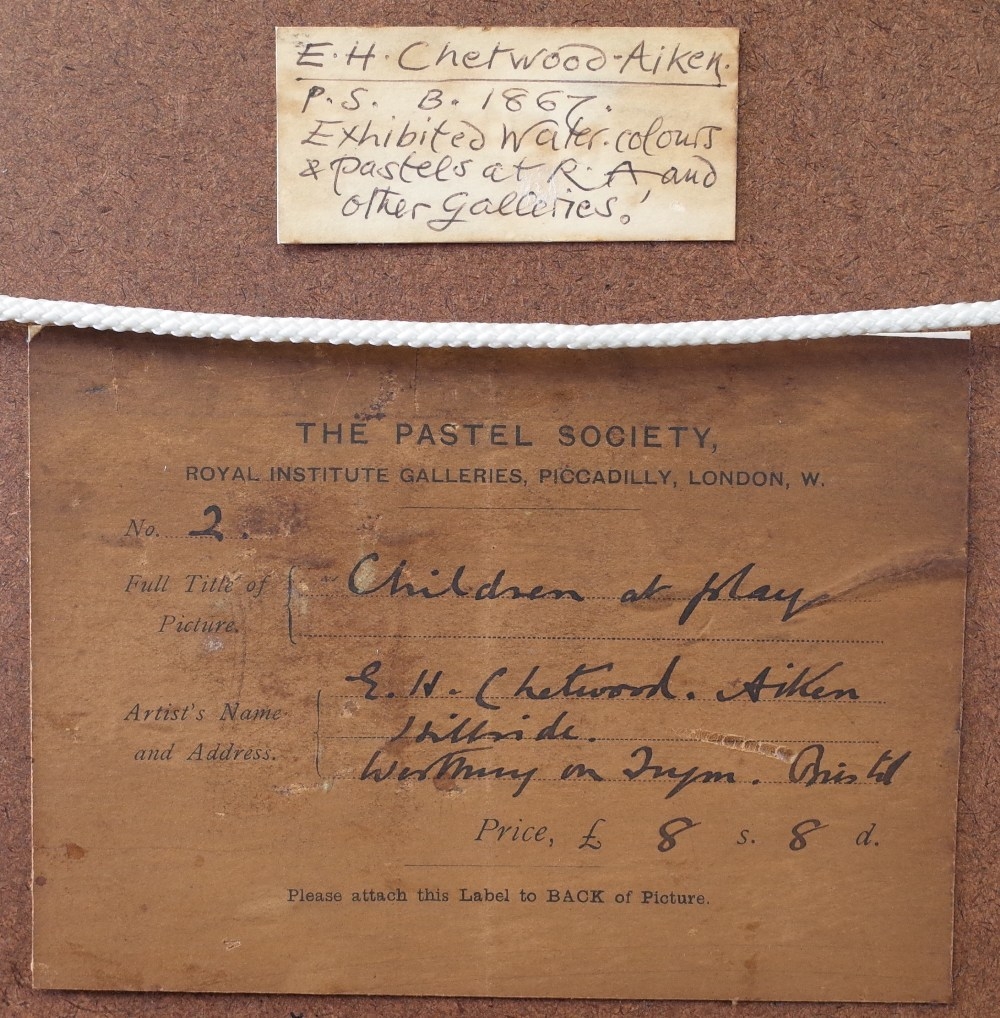 E.H. Chetwood-Aiken.
P.S. B. 1867.
Exhibited Water-colours
& pastels at R.A. and
other Galleries.
THE PASTEL SOCIETY,
ROYAL INSTITUTE GALLERIES, PICCADILLY, LONDON, W.
No. 2.
Full Title of Picture. Children at play
Artist's Name and Address. E. H. Chetwood. Aiken
Hillside.
Westbury on Trym. Bristol
Price, £ 8 s. 8 d.
Please attach this Label to BACK of Picture.